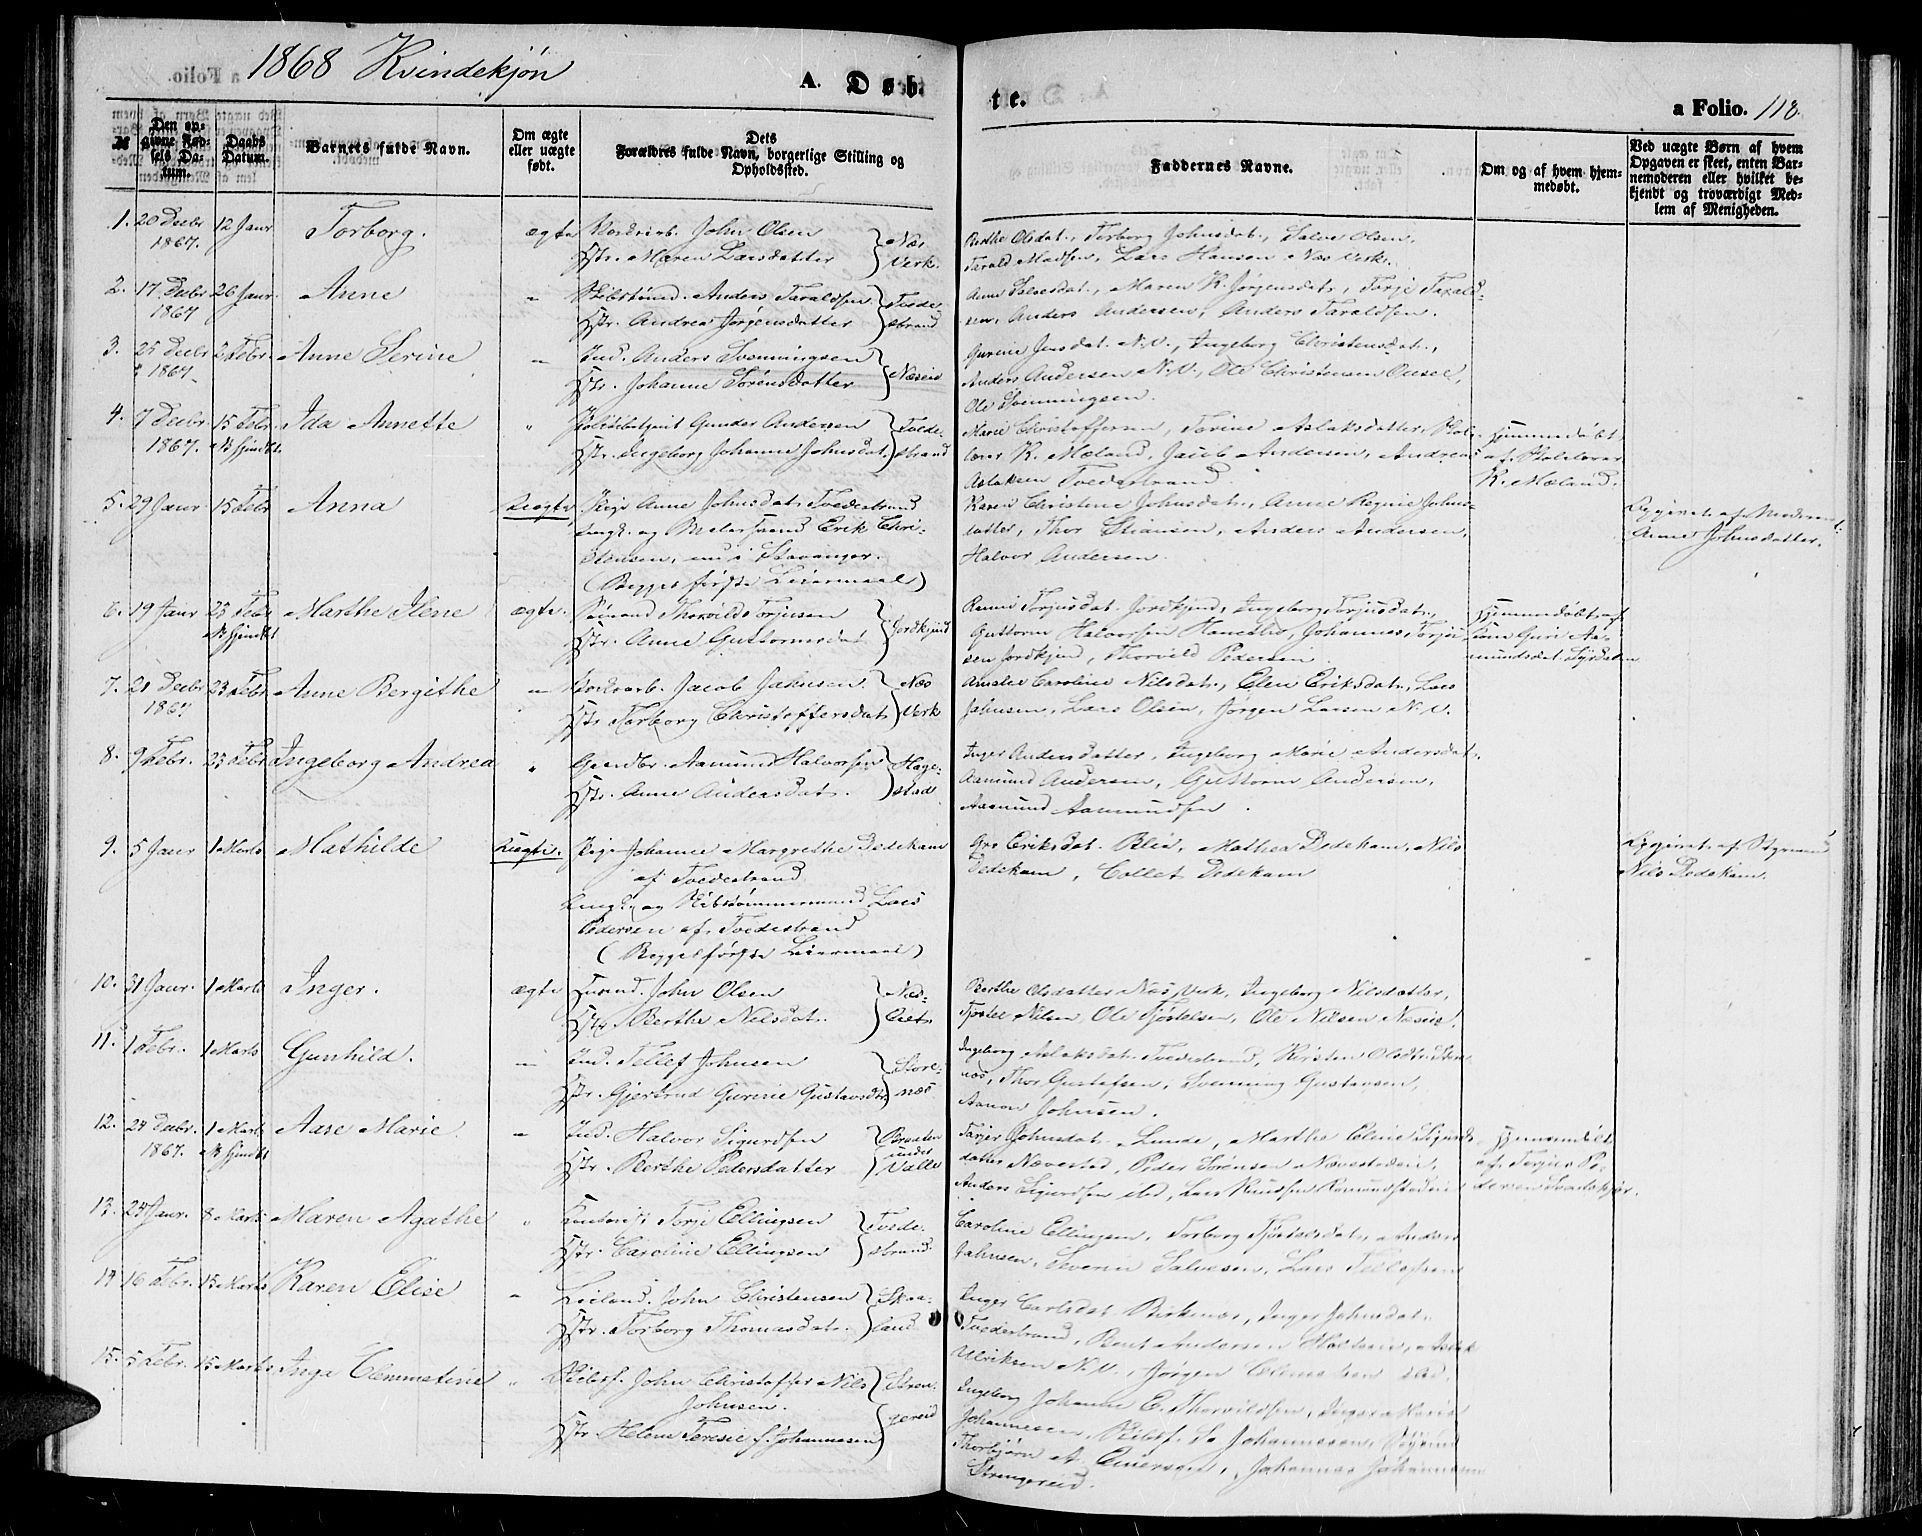 1868 Kvindekjøn
A. Døb
te.
a Folio. 118.
№
Den an-
givne Fød-
sels Da-
tum.
Daabs
Datum.
Barnets fulde Navn.
Om ægte
eller uægte
født.
Dets
Forældres fulde Navn, borgerlige Stilling og
Opholdssted.
Faddernes Navne.
Om og af hvem hjem-
medøbt.
Ved uægte Børn af hvem
Opgaven er skeet, enten Bar-
nemoderen eller hvilket be-
kjendt og troværdigt Med-
lem af Menigheden.
1. 20 Decbr 1867. 12 Janr Torborg. ægte John Olsen
Maren Larsdatter Næs Verk.
Berthe Olsdat., Torborg Johnsdat., Salve Olsen,
Tarald Madsen, Lars Hansen Næs Verk.
2. 17 Decbr 1867 26 Janr Anne " Anders Taraldsen
Andrea Jørgensdatter Tvede-
strand
Anne Salvesdat., Maren K. Jørgensdat., Terje Tarald-
sen, Anders Andersen, Anders Taraldsen.
3. 25 Decbr 1867 2 Febr. Anne Serine " Ind. Anders Svenningsen
Johanne Sørensdatter Næseie
Gurine Jensdat. N.V., Ingeborg Christensdat.,
Anders Andersen N.V., Ole Christensen
Ole Svenningsen.
4. 7 Decbr 1867. 15 Febr Ida Annette " Politibetjent Gunder Andersen
Ingeborg Johanne Johnsdat. Tvede-
strand
Marie Christoffersen, Terine Aslaksdatter, Skol-
lærer K. Mæland, Jacob Andersen, Andreas
Aslaksen Tvedestrand.
Hjemmedøbt
af Skolelærer
K. Mæland.
5. 29 Janr 15 Febr Anna Uægte Pige Anne Johnsdat. Tvedestrand
Ungk. og Matrossvend Erik Chri-
stensen, nu i Stavanger.
(Begges første Leiermaal)
Karen Christine Johnsdat., Anne Regine Johns-
datter, Thor Stiansen, Anders Andersen,
Halvor Andersen.
Opgivet af Moderen
Anne Johnsdatter.
6. 19 Janr 23 Febr Marthe Ilene ægte. Sømand Thorvild Torjusen
Anne Guttormsdat Jordkjend
Torjusdat. Jordkjend, Ingeborg Torjusdat.,
Guttorm Halvorsen Hanesbo, Johannes Torju-
sen Jordkjend, Thorvild Pedersen
Hjemmedøbt af
Guri Aa-
mundsdat.
7. 21 Decbr 1867 23 Febr. Anne Bergithe " Jacob Jahnsen
Torborg Christoffersdat. Næs
Verk
Amalie Caroline Nilsdat., Elen Eriksdat., Lars
Jahnsen, Lars Olsen, Jørgen Larsen N.V.
8. 9 Febr. 23 Febr Ingeborg Andrea " Gaardbr. Aamund Halvorsen
Anne Andersdat. Hage-
stad
Inger Andersdatter, Ingeborg Marie Andersdat.,
Aamund Andersen, Guttorm Andersen,
Aamund Aamundsen.
9. 5 Janr 1 Marts Mathilde Uægte. Pige Johanne Margrethe Dedekam
af Tvedestrand
Ungk. og Skibstømmermand Lars
Pedersen af Tvedestrand
(Begges første Leiermaal)
Gro Eriksdat. Mathea Dedekam, Nils
Dedekam, Collet Dedekam
Opgivet af Styrmand
Nils Dedekam.
10. 31 Janr. 1 Marts Inger. ægte John Olsen
Berthe Nilsdat. Næs-
Berthe Olsdatter Næs Verk, Ingeborg Nilsdatter,
Tjøstel Nilsen, Ole Tjøstelsen, Ole Nilsen Næseie.
11. 1 Febr. 1 Marts Gunhild. " Ind. Tellef Johnsen
Gjertrud Gurine Gustavsdat Store-
næs
Ingeborg Aslaksdat. Tvedestrand, Kirsten Olsdtr. Store-
næs, Thor Gustafsen, Svenning Gustavsen,
Aanon Johnsen.
12. 24 Decbr. 1867. 1 Marts Aase Marie " Ind. Halvor Sigurdsen
Berthe Pedersdatter Braaten
under
Valle
Johnsdat. Lunde, Marthe Sigurds-
datter Nævestad, Peder Sørensen
Anders Sigurdsen ibd, Lars Knudsen
Hjemmedøbt
af Terjus Pe-
dersen
13. 24 Janr. 8 Marts Maren Agathe " Terje Ellingsen
Caroline Ellingsen Tvede-
strand.
Caroline Ellingsen, Torborg Tjøstelsdat., Anders
Jahnsen, Severin Salvesen, Lars Tellefsen
14 16 Febr. 15 Marts Karen Elise " John Christensen
Torborg Thomasdat. Skaa-
land
Inger Carlsdat. Birknæs, Inger Johnsdat.
Tvedestrand, Bent Andersen Aslak
Ulriksen N.V., Jørgen
15. 5 Febr. 15 Marts Inga Clemmetine " John Christoffer Nils
Johnsen.
Helene Terese f. Johannesen Stren-
gereid
Ingeborg Johanne E. Thorvildsen, Inger Marie
Johannesen, Johannesen,
Thorbjørn A. Johannes Johannesen
Strengereid.